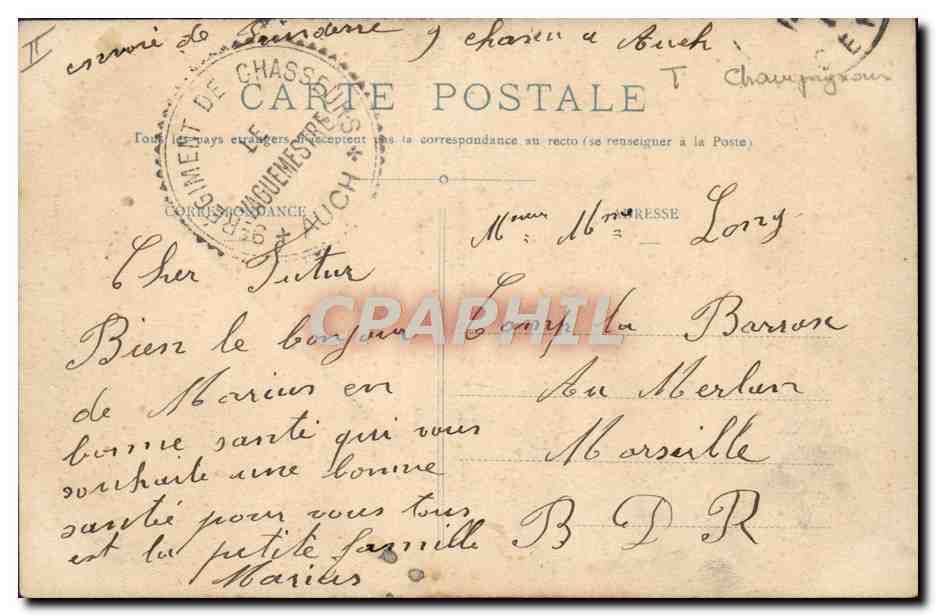 II
envoi de 9 chasseur a Auch
T
CARTE POSTALE
Tous les pays étrangers n'acceptent pas la correspondance au recto (se renseigner à la Poste)
9e REGIMENT DE CHASSEURS * AUCH *
LE
VAGUEMESTRE
CORRESPONDANCE
ADRESSE
Cher Futur
Bien le bonjour
de Marius en
bonne santé qui vous
souhaite une bonne
santé pour vous tous
est la petite famille
Marius
Mme
Camp la
Au Merlan
Marseille
B D R
CPARPHIL